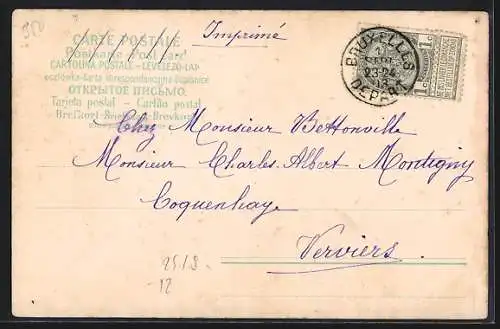 Imprimé
CARTE POSTALE
Postkarte
CARTOLINA POSTALE – LEVELEZŐ-LAP
ОТКРЫТОЕ ПИСЬМО.
Tarjeta postal – Cartão postal
BRUXELLES
23-24
DEPART
1c
1c
Chez Monsieur Bettonville
Monsieur Charles-Albert Montigny
Coquenhaye
Verviers
12